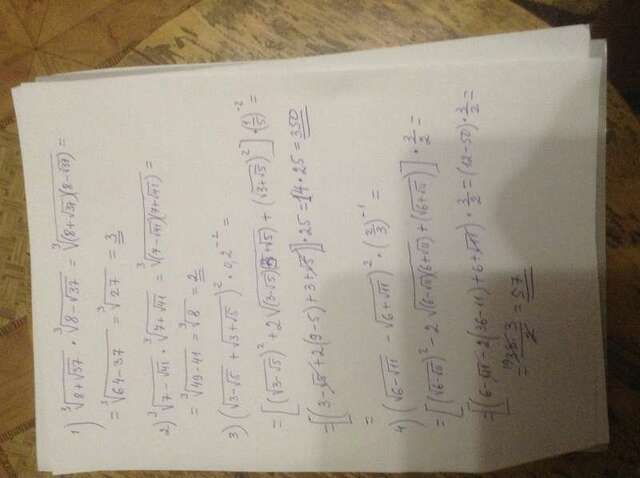 1) ∛(8+√37) · ∛(8-√37) = ∛((8+√37)(8-√37)) =
= ∛(64-37) = ∛27 = 3
2) ∛(7-√41) · ∛(7+√41) = ∛((7-√41)(7+√41)) =
= ∛(49-41) = ∛8 = 2
3) (√(3-√5) + √(3+√5))² · 0,2⁻² =
= [(√(3-√5))² + 2√((3-√5)(3+√5)) + (√(3+√5))²] · (1/5)⁻² =
= [(3-√5+2(9-5)+3+√5)] · 25 = 14 · 25 = 350
=
4) (√(6-√11) - √(6+√11))² · (2/3)⁻¹ =
= [(√(6-√11))² - 2√((6-√11)(6+√11)) + (√(6+√11))] · 3/2 =
= [(6-√11-2(36-11)+6+√11) · 3/2 = (12-50) · 3/2 =
= 38·3/2 = 57